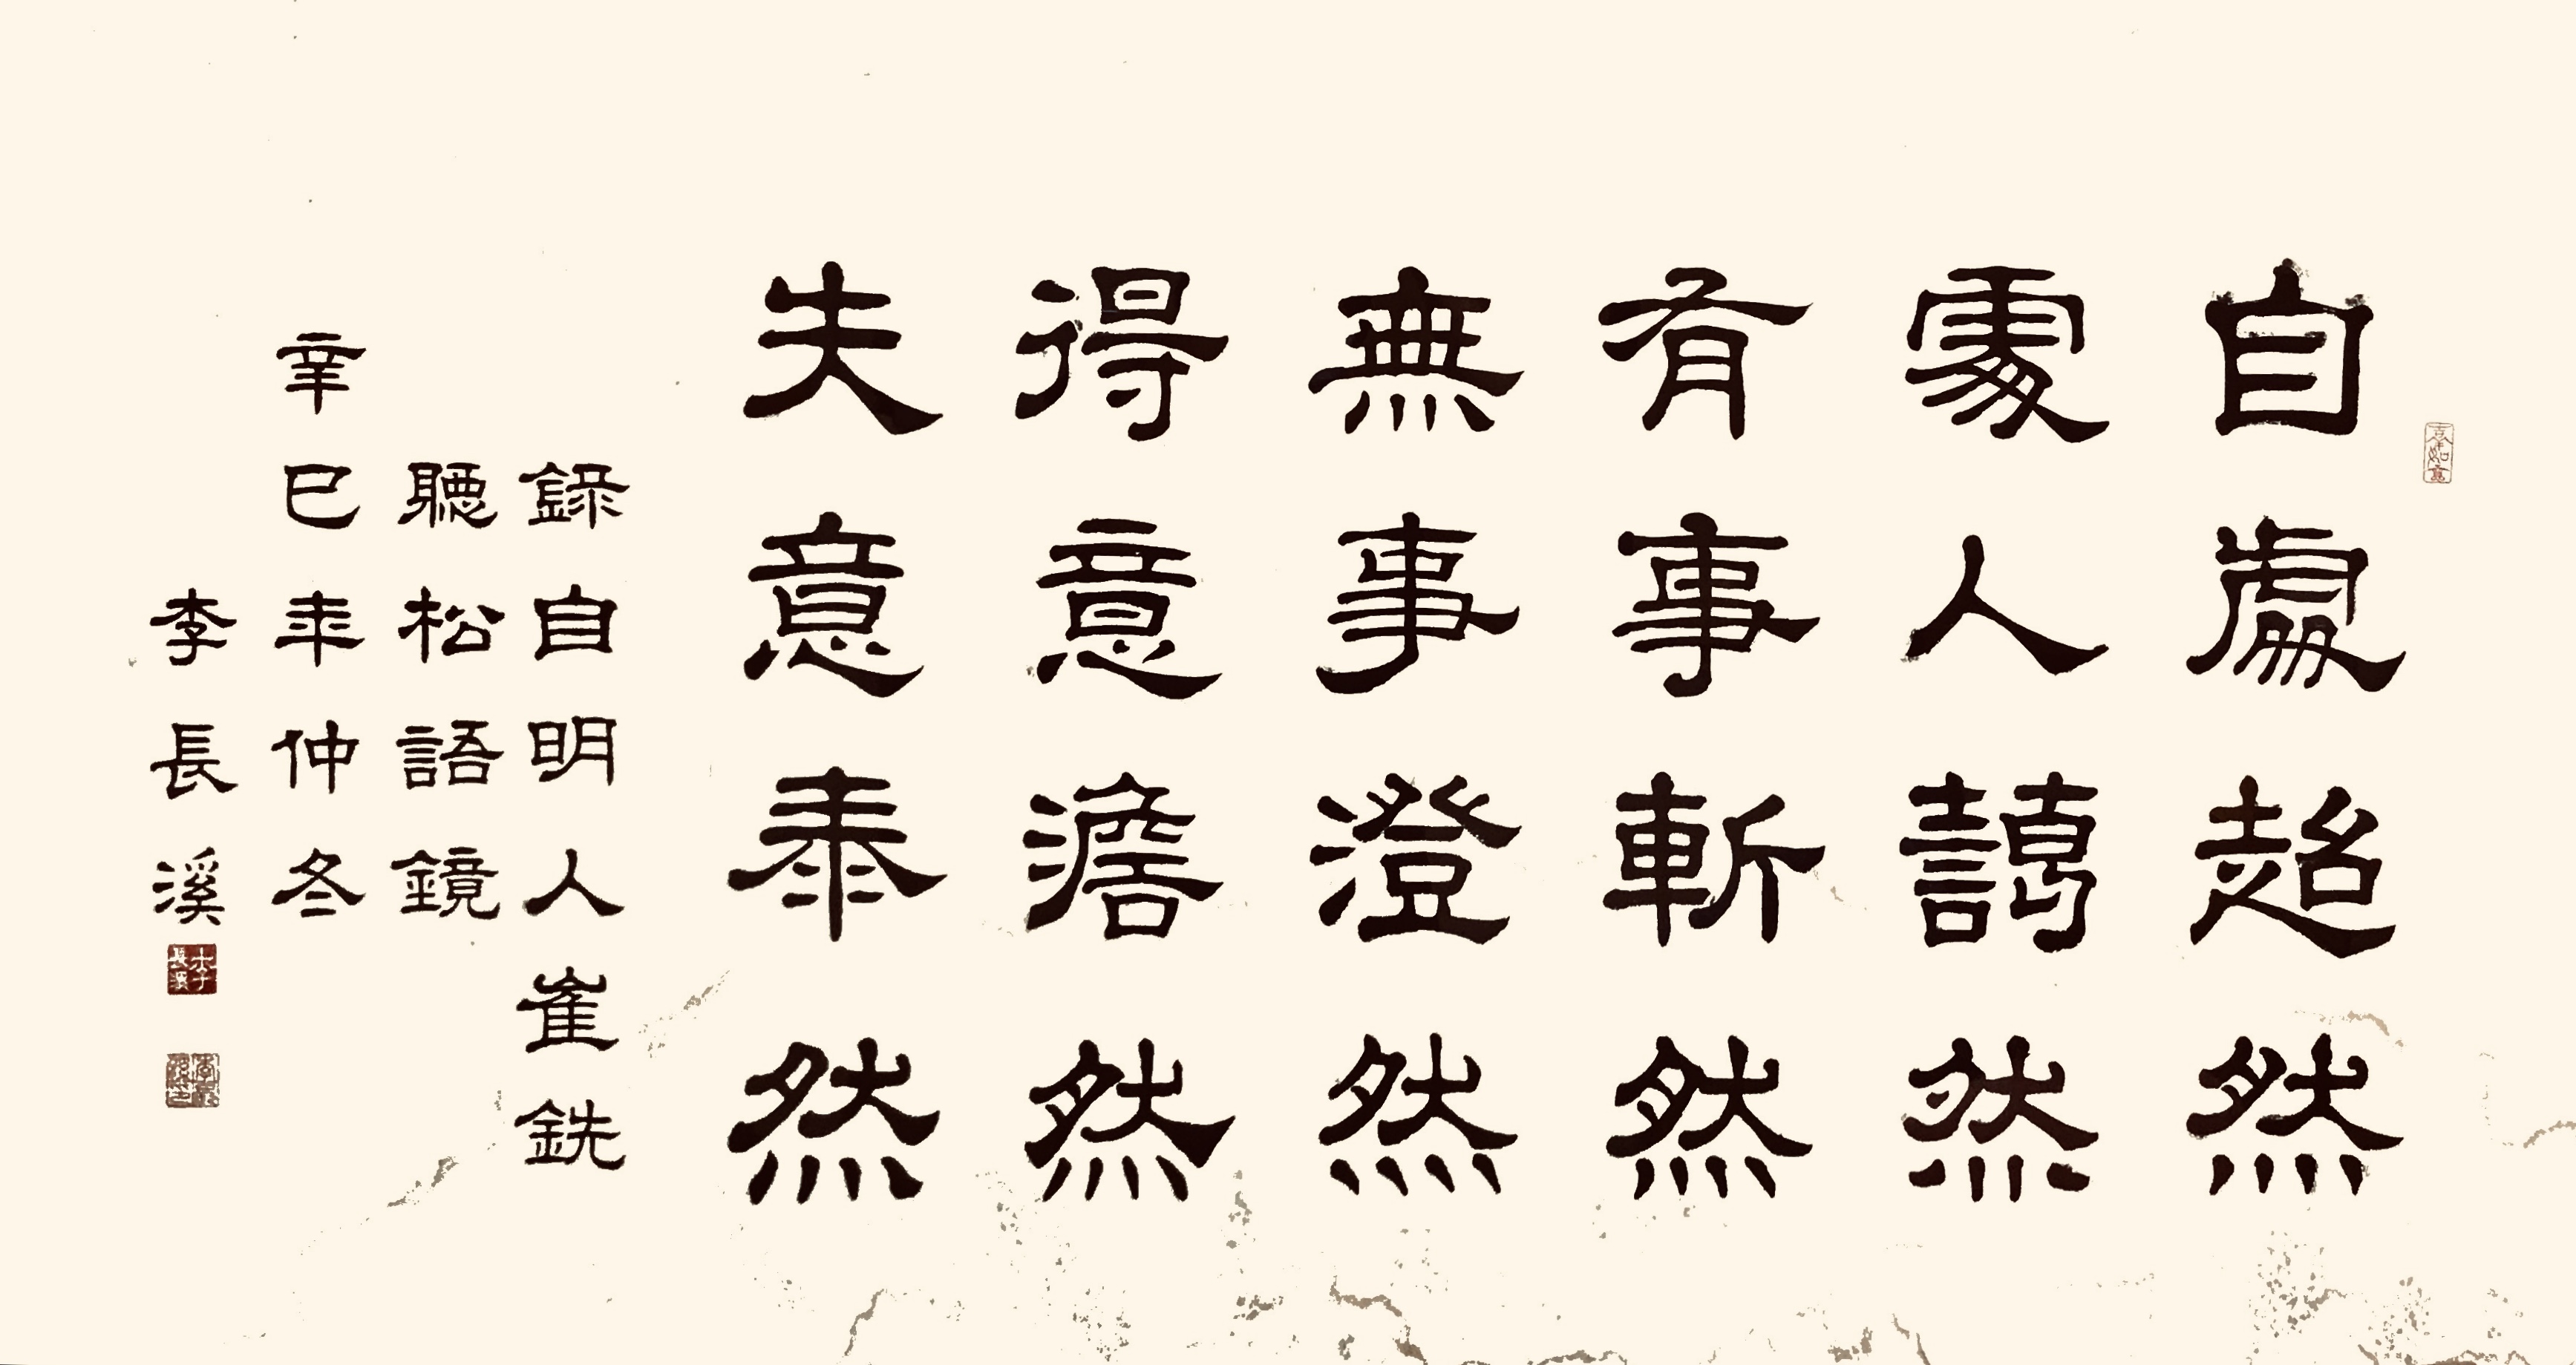 自處超然
處人藹然
有事斬然
無事澄然
得意澹然
失意泰然
錄自明人崔銑
聽松語鏡
辛巳年仲冬
李長溪